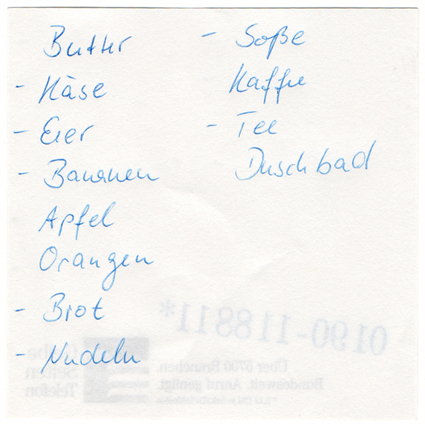 Butter
- Käse
- Eier
- Bananen
Apfel
Orangen
- Brot
- Nudeln
- Soße
Kaffee
- Tee
Duschbad
0190-118811*
Gelbe
Seiten
Telefon
Über 5700 Branchen.
Bundesweit. Anruf genügt.